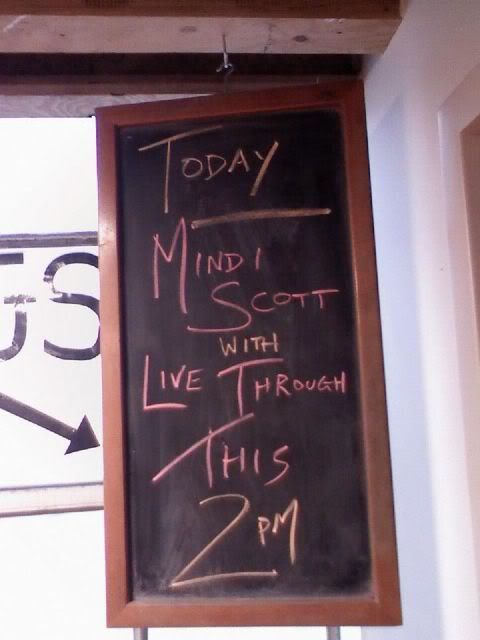 TODAY
MINDI
SCOTT
WITH
LIVE THROUGH
THIS
2 PM